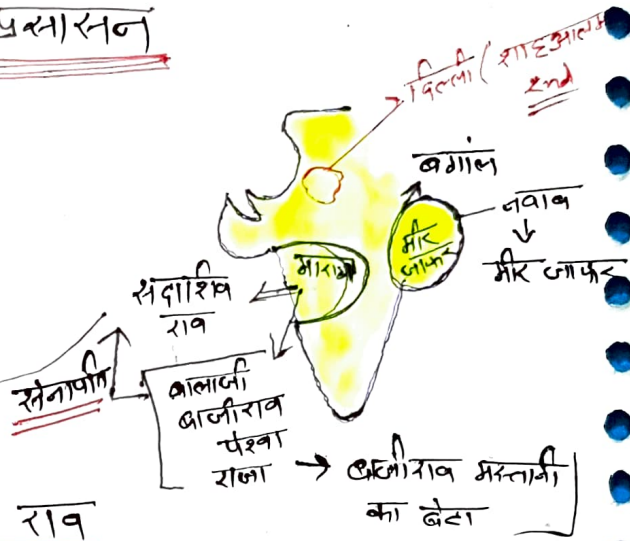 प्रसासन
दिल्ली ( शाहआलम
2nd
बगांल
नवाब
मीर
जाफर
मीर जाफर
माराठा
संदाशिव
राव
सेनापति
बालाजी
बाजीराव
पेश्वा
राजा → बाजीराव मस्तानी
का बेटा
राव